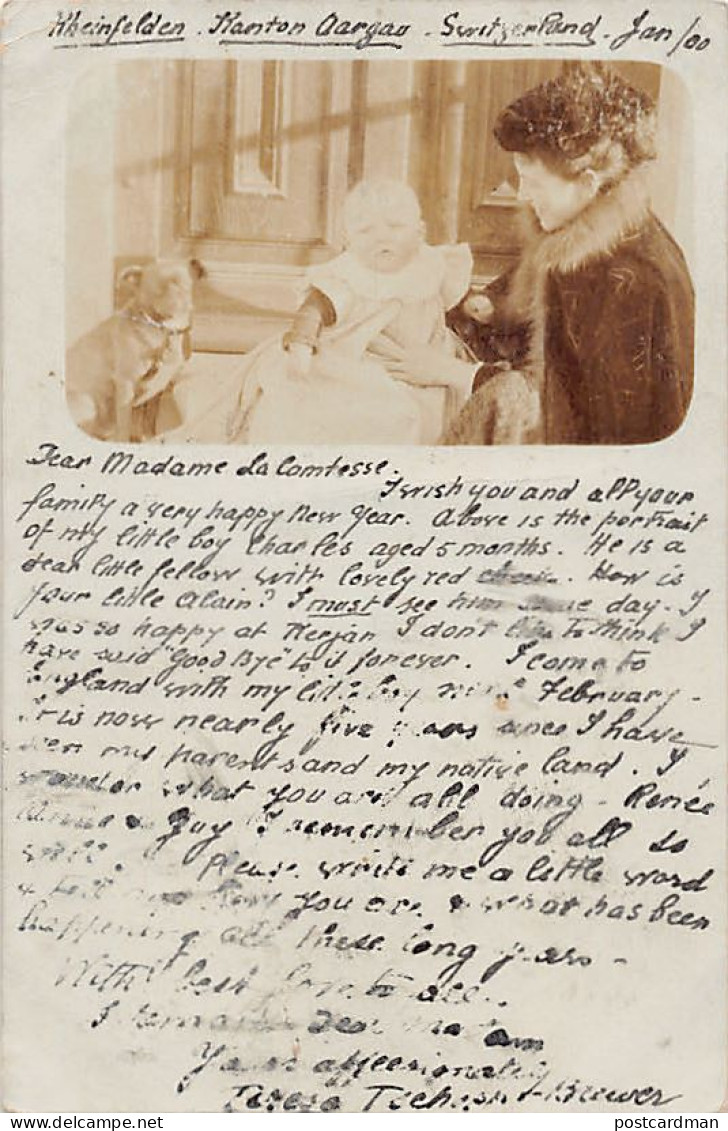 Rheinfelden. Kanton Aargau - Switzerland. Jan/00
Dear Madame La Comtesse.
I wish you and all your
family a very happy New Year. Above is the portrait
of my little boy Charles aged 5 months. He is a
dear little fellow with lovely red. How is
your little Alain? I must see him some day. I
was so happy at Kerjan I don't like to think I
have said "Good Bye" to it forever. I come to
England with my little boy next February -
It is now nearly five years since I have
seen my parents and my native land. I
wonder what you are all doing - Renée
& Guy I remember you all so
well. Please write me a little word
& tell me how you are & what has been
happening all these long years -
With best love to all..
I remain Dear Madam
Yours affectionately
Teresa
postcardman